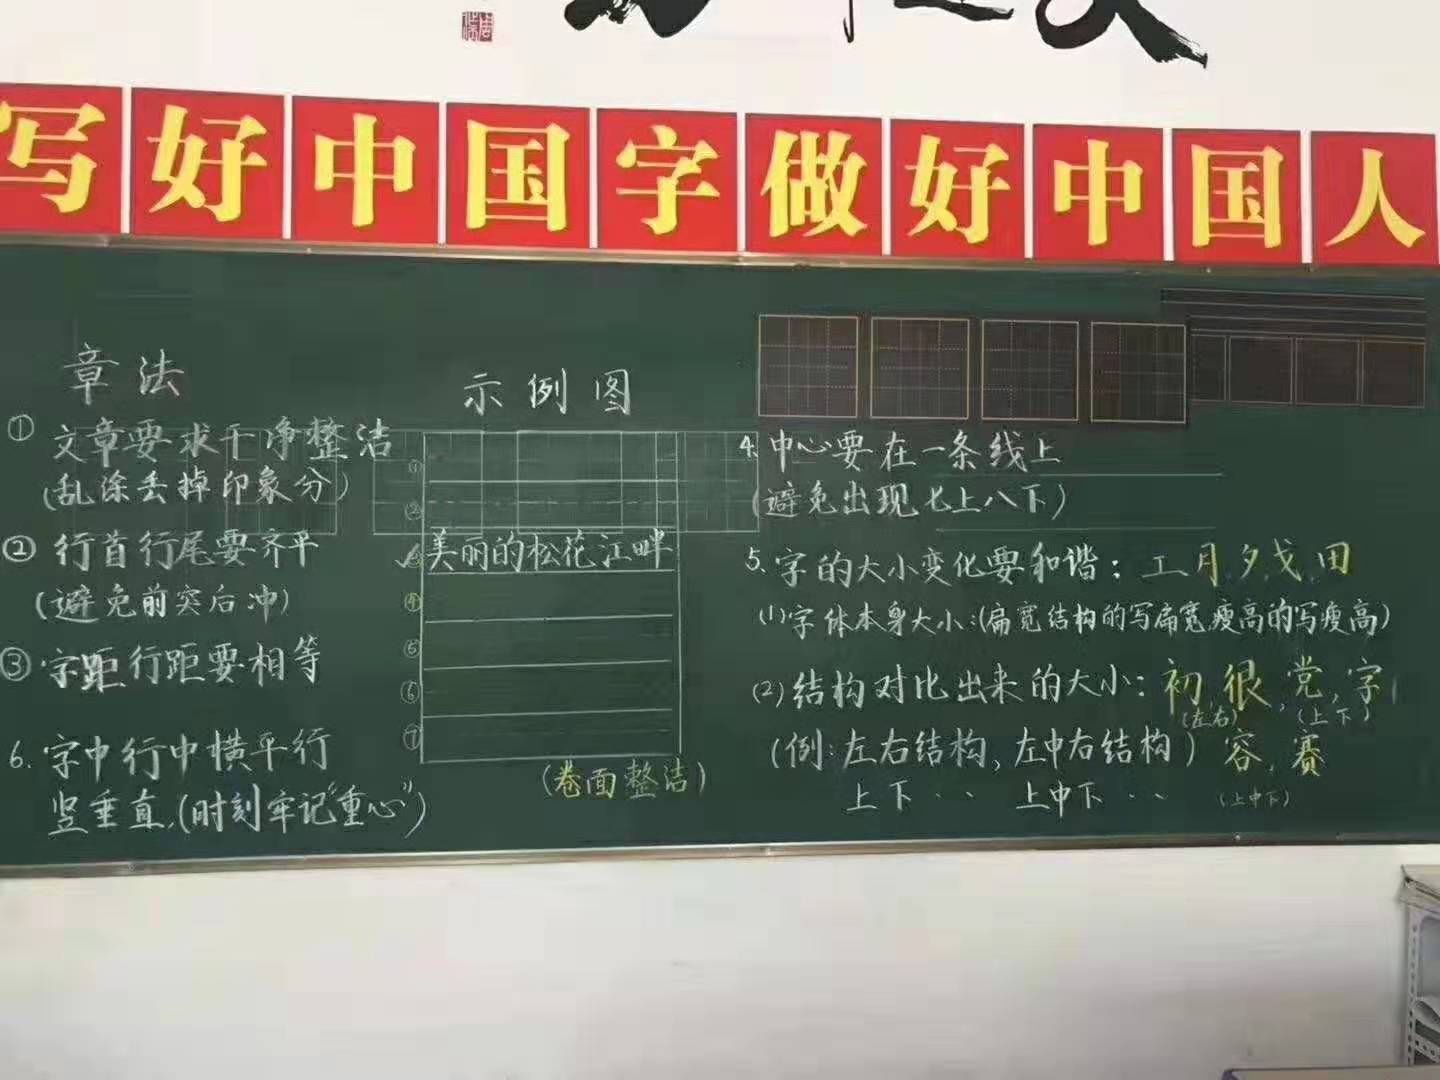 写好中国字做好中国人
章法
① 文章要求干净整洁
(乱涂丢掉印象分)
② 行首行尾要齐平
(避免前突后冲)
③ 字距行距要相等
6. 字中行中横平行
竖垂直,(时刻牢记"重心")
示例图
①
②
③ 美丽的松花江畔
④
⑤
⑥
⑦
(卷面整洁)
4. 中心要在一条线上
(避免出现七上八下)
5. 字的大小变化要和谐: 工.月,夕,戈,田
(1) 字体本身大小:(扁宽结构的写扁宽,瘦高的写瘦高)
(2) 结构对比出来的大小: 初,很,党,字
(左,右) (上下)
(例:左右结构,左中右结构) 容,赛
上下·· 上中下·· (上中下)